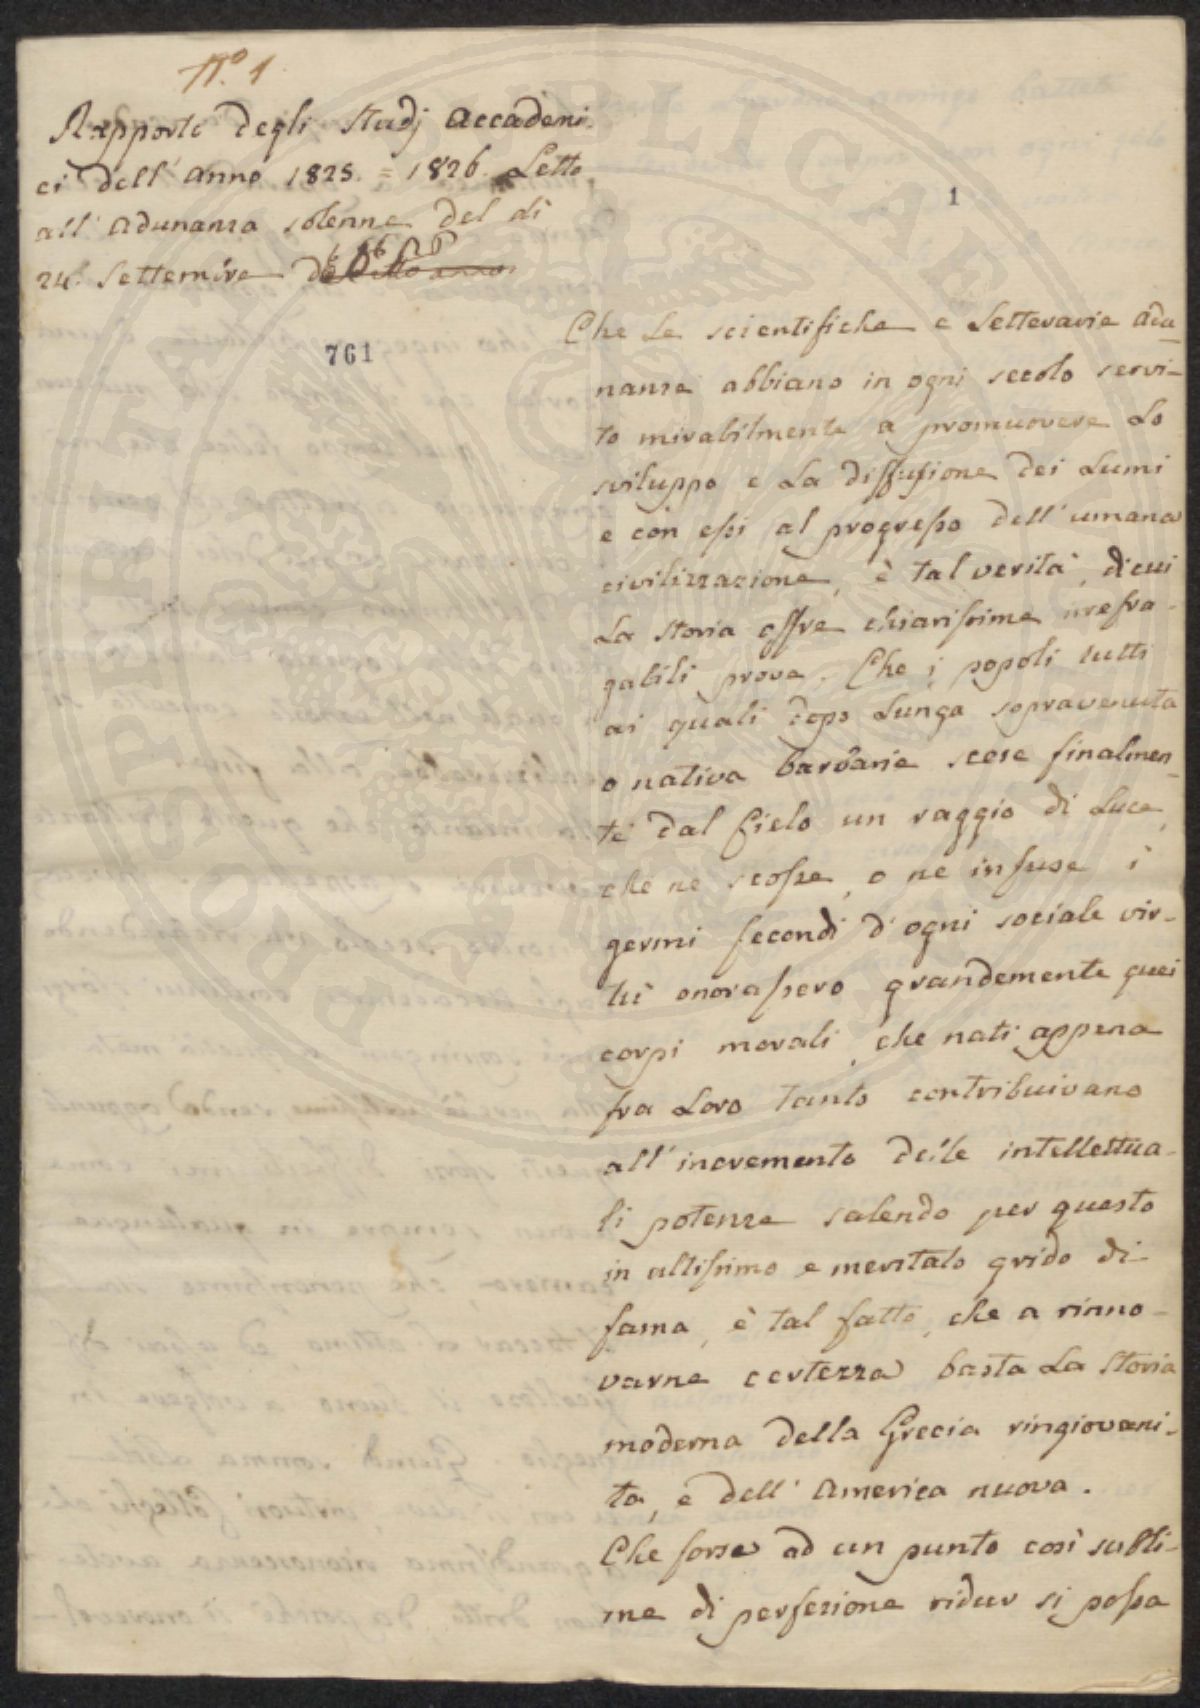 N.º 1
Rapporto degli studj accademi-
ci dell'anno 1825. = 1826. Letto
all'adunanza solenne del di
24. Settembre detto anno.
761
1
Che le scientifiche e letterarie adu-
nanze abbiano in ogni secolo servi-
to mirabilmente a promuovere lo
sviluppo e la diffusione dei lumi
e con essi al progresso dell'umana
civilizzazione, è tal verità, di cui
la storia offre chiarissime irrefra-
gabili prove. Che i popoli tutti
ai quali dopo lunga sopravenuta
o nativa barbarie scese finalmen-
te dal Cielo un raggio di luce,
che ne scosse, o ne infuse i
germi fecondi d'ogni sociale vir-
tù onorassero grandemente quei
corpi morali, che nati appena
fra loro tanto contribuivano
all'incremento delle intellettua-
li potenze salendo per questo
in altissimo e meritato grido di
fama, è tal fatto, che a rinno-
varne certezza basta la storia
moderna della Grecia ringiovani-
ta, e dell'America nuova.
Che forse ad un punto così subli-
me di perfezione ridur si possa
PROSPERITATI PUBLICAE